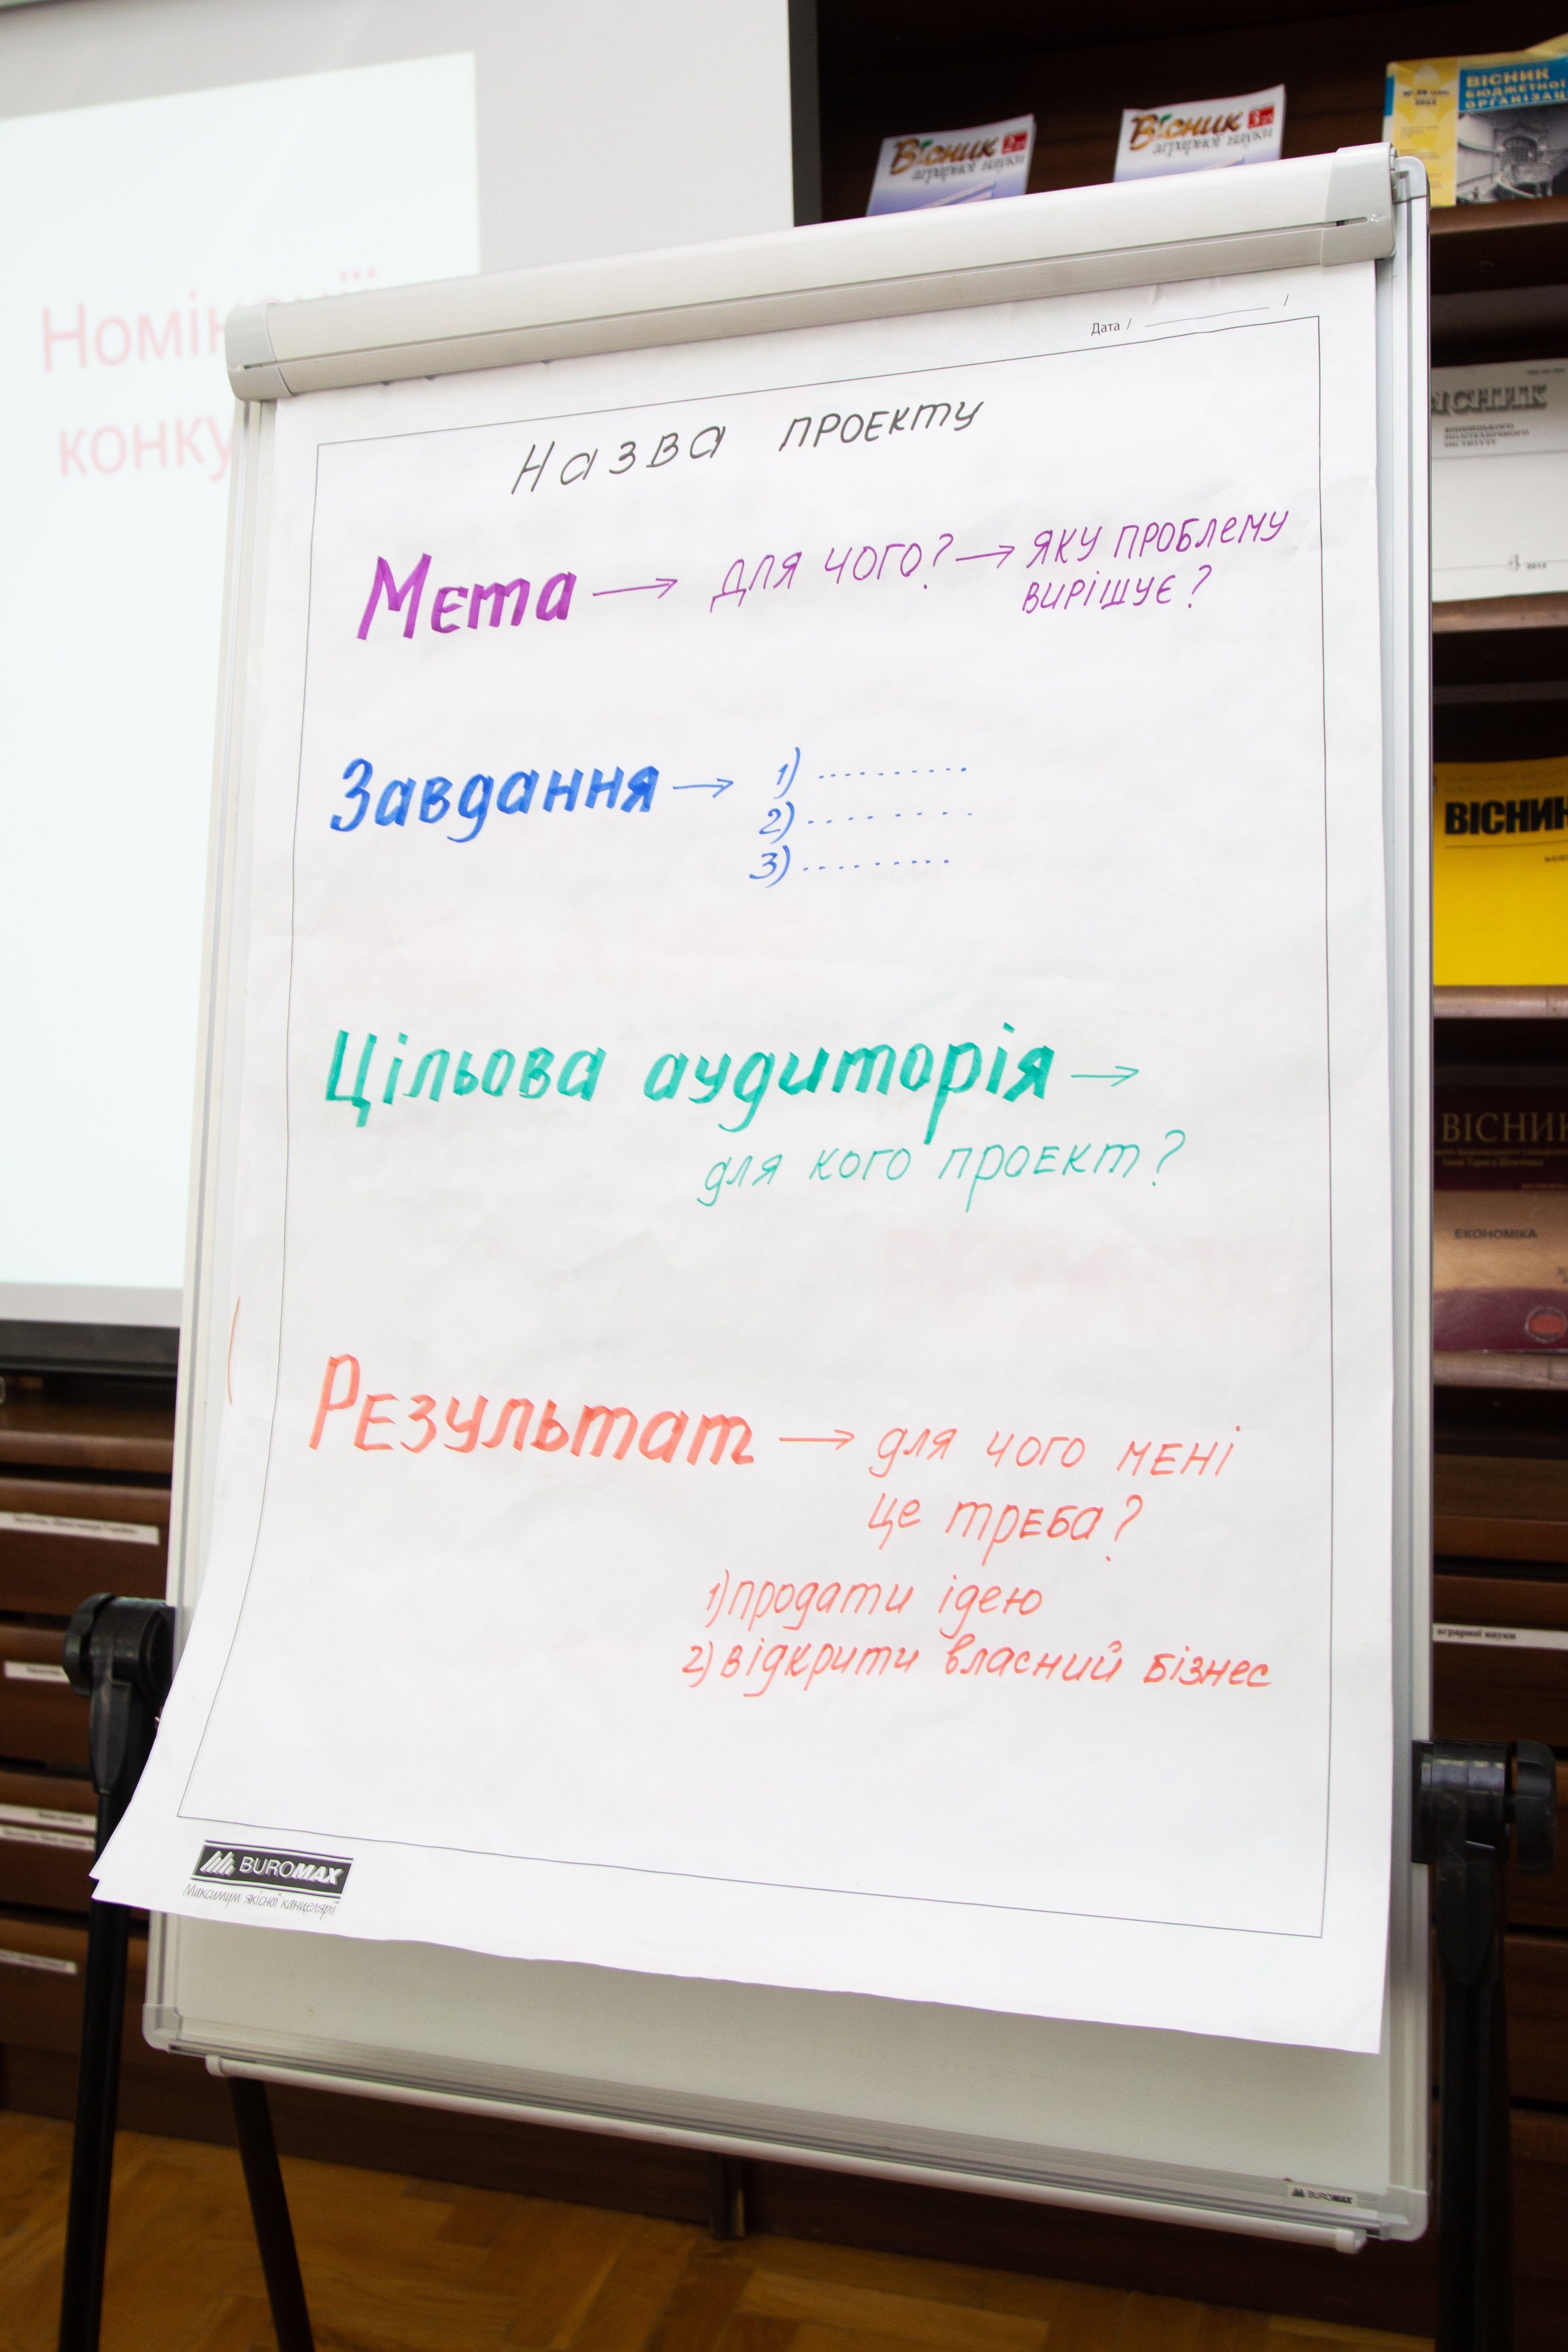 Вісник 2
аграрної науки
Вісник 3
аграрної науки
ВІСНИК
БЮДЖЕТНОЇ
ОРГАНІЗАЦ
Номін
конку
Дата / /
Назва проекту
Мета → для чого? → яку проблему
вирішує?
Завдання → 1) ..........
2) ..........
3) ..........
Цільова аудиторія →
для кого проект?
Результат → для чого мені
це треба?
1) продати ідею
2) відкрити власний бізнес
BUROMAX
Максимум якісної канцелярії
BUROMAX
ІСНИК
4 2012
ВІСНИК
ВІСНИК
ЕКОНОМІКА
аграрної науки